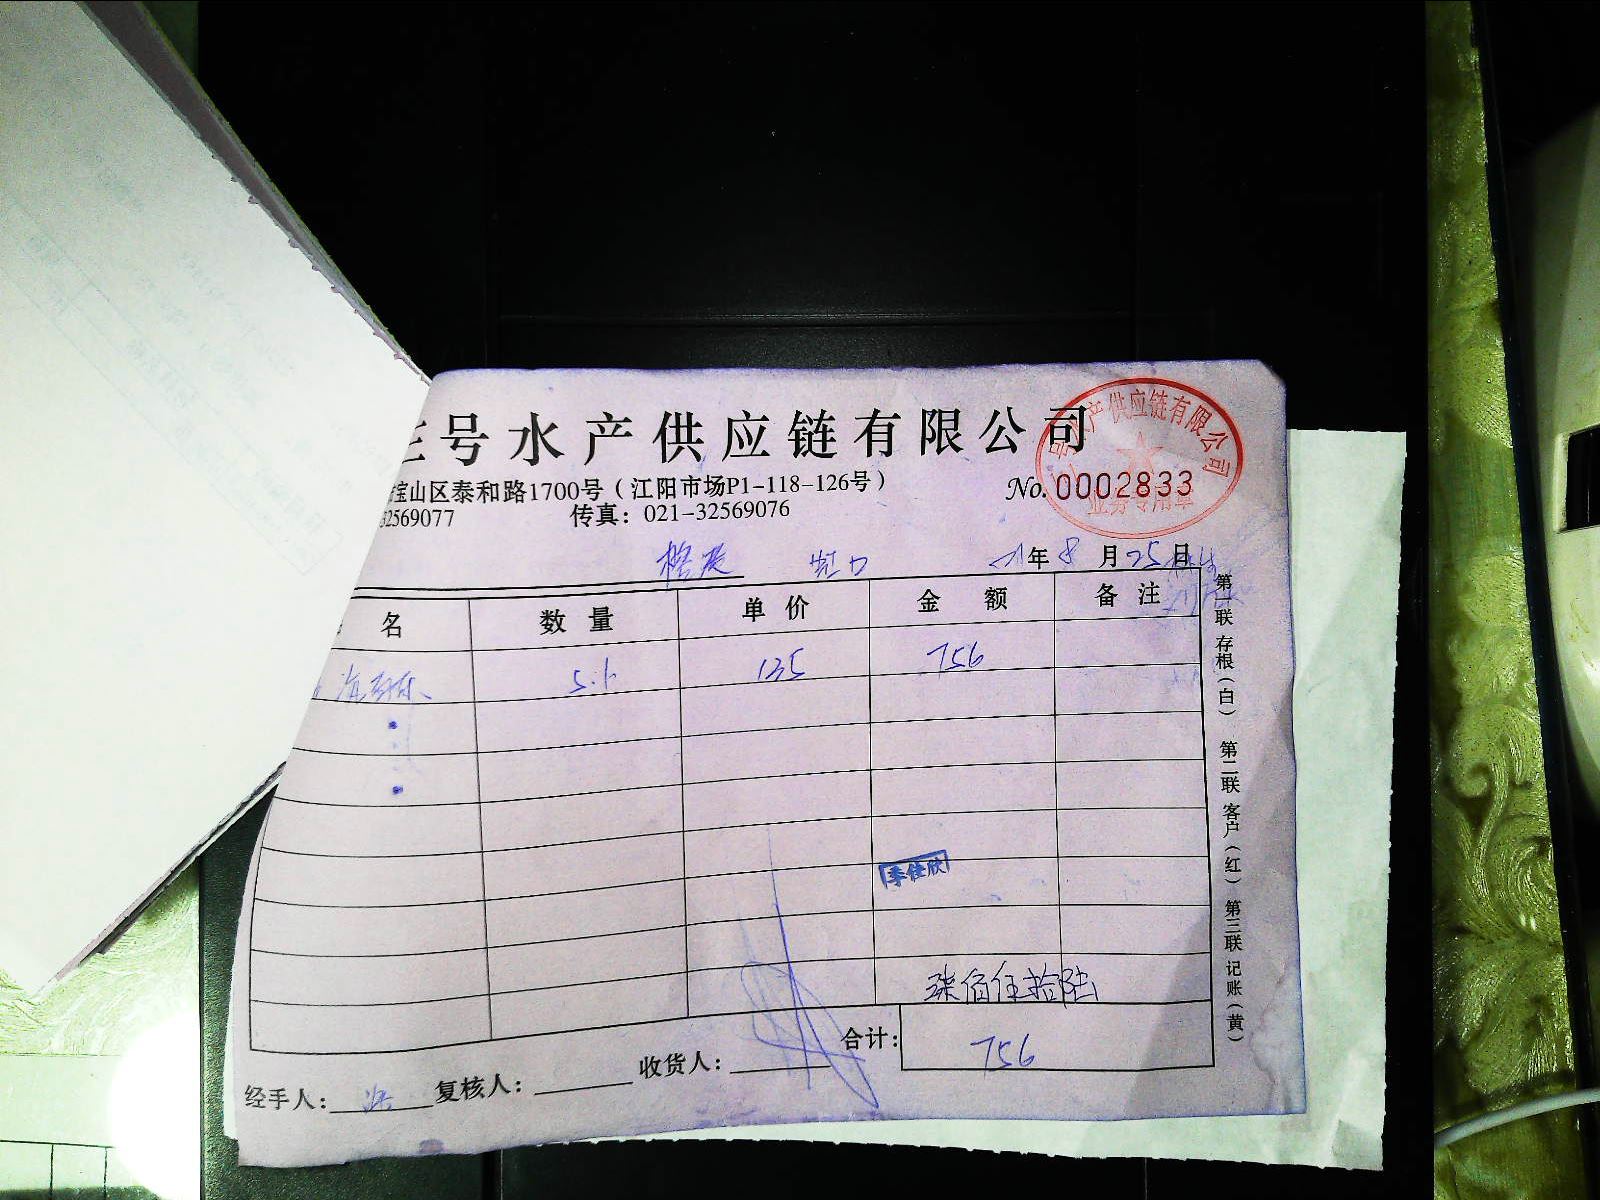 号水产供应链有限公司
宝山区泰和路1700号（江阳市场P1-118-126号）
32569077 传真：021-32569076
No. 0002833
号水产供应链有限公司
业务专用章
虹口 21年8月25日
名 数量 单价 金额 备注
海 5.6 135 756
季佳欣
柒佰伍拾陆
合计：756
经手人： 复核人： 收货人：
第一联 存根（白） 第二联 客户（红） 第三联 记账（黄）